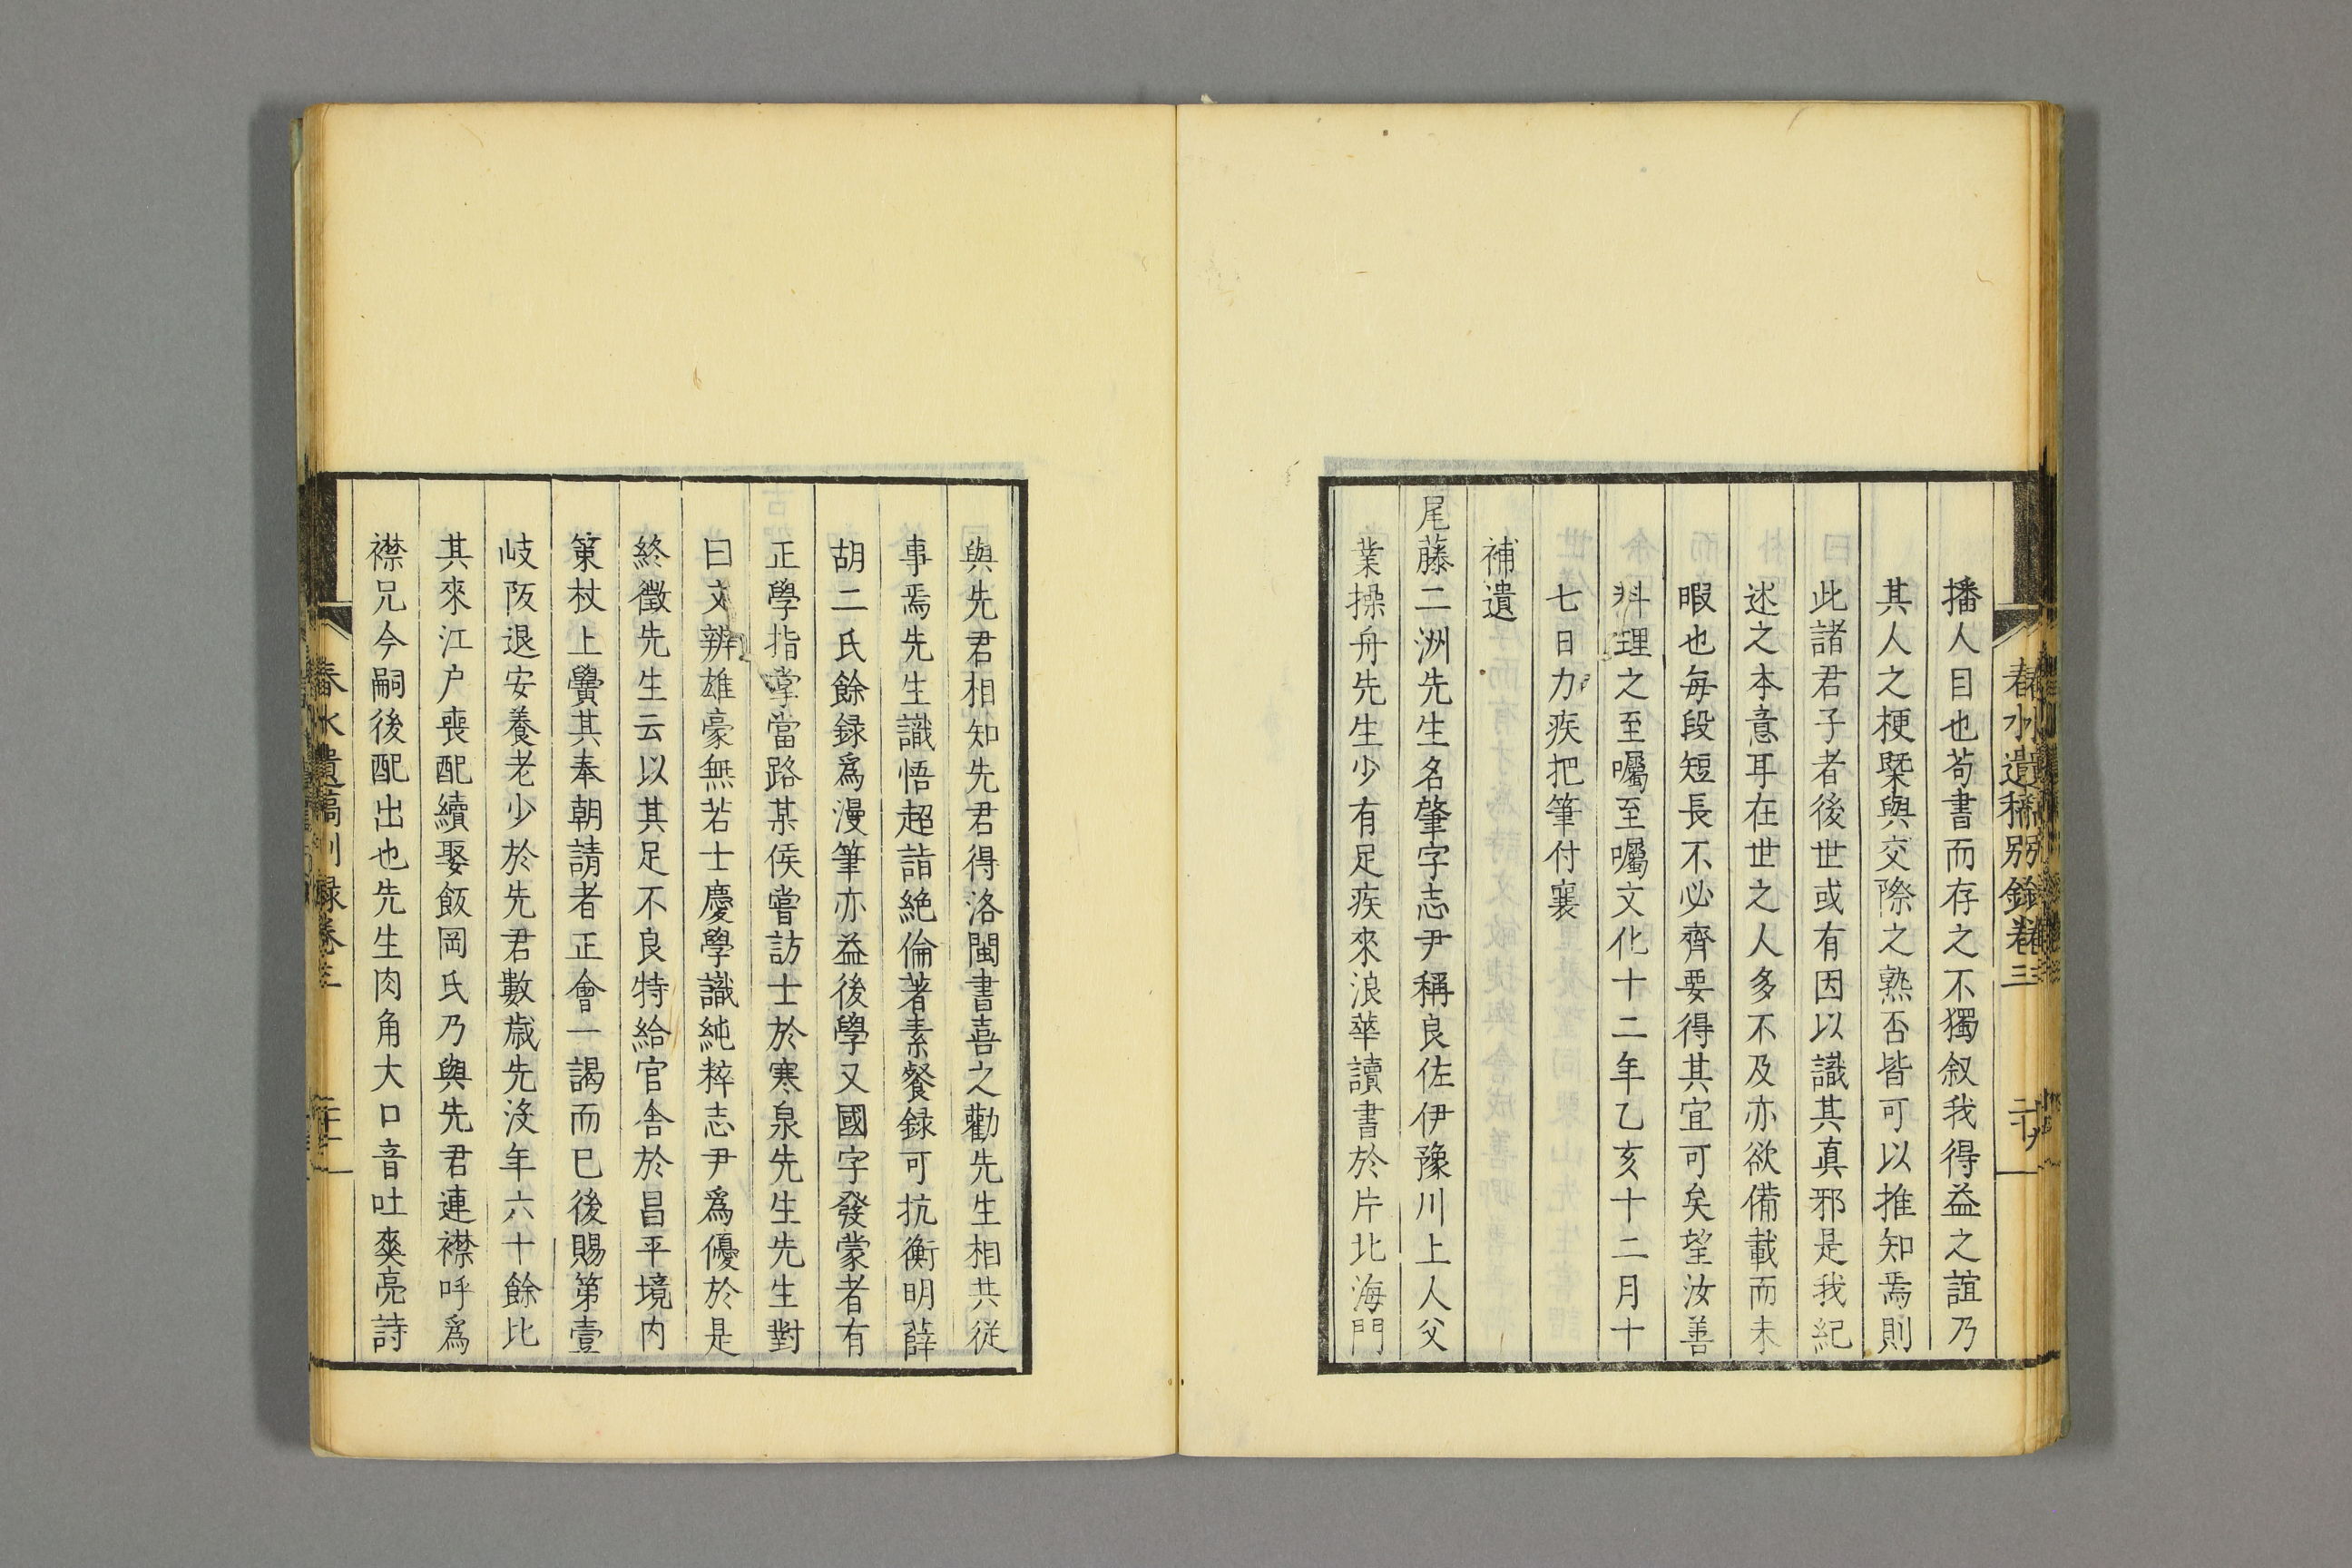 春水遺稿別錄卷三
二十九
播人目也苟書而存之不獨叙我得益之誼乃
其人之梗槩與交際之熟否皆可以推知焉則
此諸君子者後世或有因以識其真邪是我紀
述之本意耳在世之人多不及亦欲備載而未
暇也每段短長不必齊要得其宜可矣望汝善
料理之至囑至囑文化十二年乙亥十二月十
七日力疾把筆付襄
補遺
尾藤二洲先生名肇字志尹稱良佐伊豫川上人父
業操舟先生少有足疾來浪華讀書於片北海門
與先君相知先君得洛閩書喜之勸先生相共從
事焉先生識悟超詣絶倫著素餐録可抗衡明薛
胡二氏餘録爲漫筆亦益後學又國字發蒙者有
正學指掌當路某侯嘗訪士於寒泉先生先生對
曰文辨雄豪無若士慶學識純粹志尹爲優於是
終徵先生云以其足不良特給官舎於昌平境内
策杖上黌其奉朝請者正會一謁而已後賜第壹
岐阪退安養老少於先君數歳先没年六十餘比
其來江户喪配續娶飯岡氏乃與先君連襟呼爲
襟兄今嗣後配出也先生肉角大口音吐爽亮詩
春水遺稿別録卷三